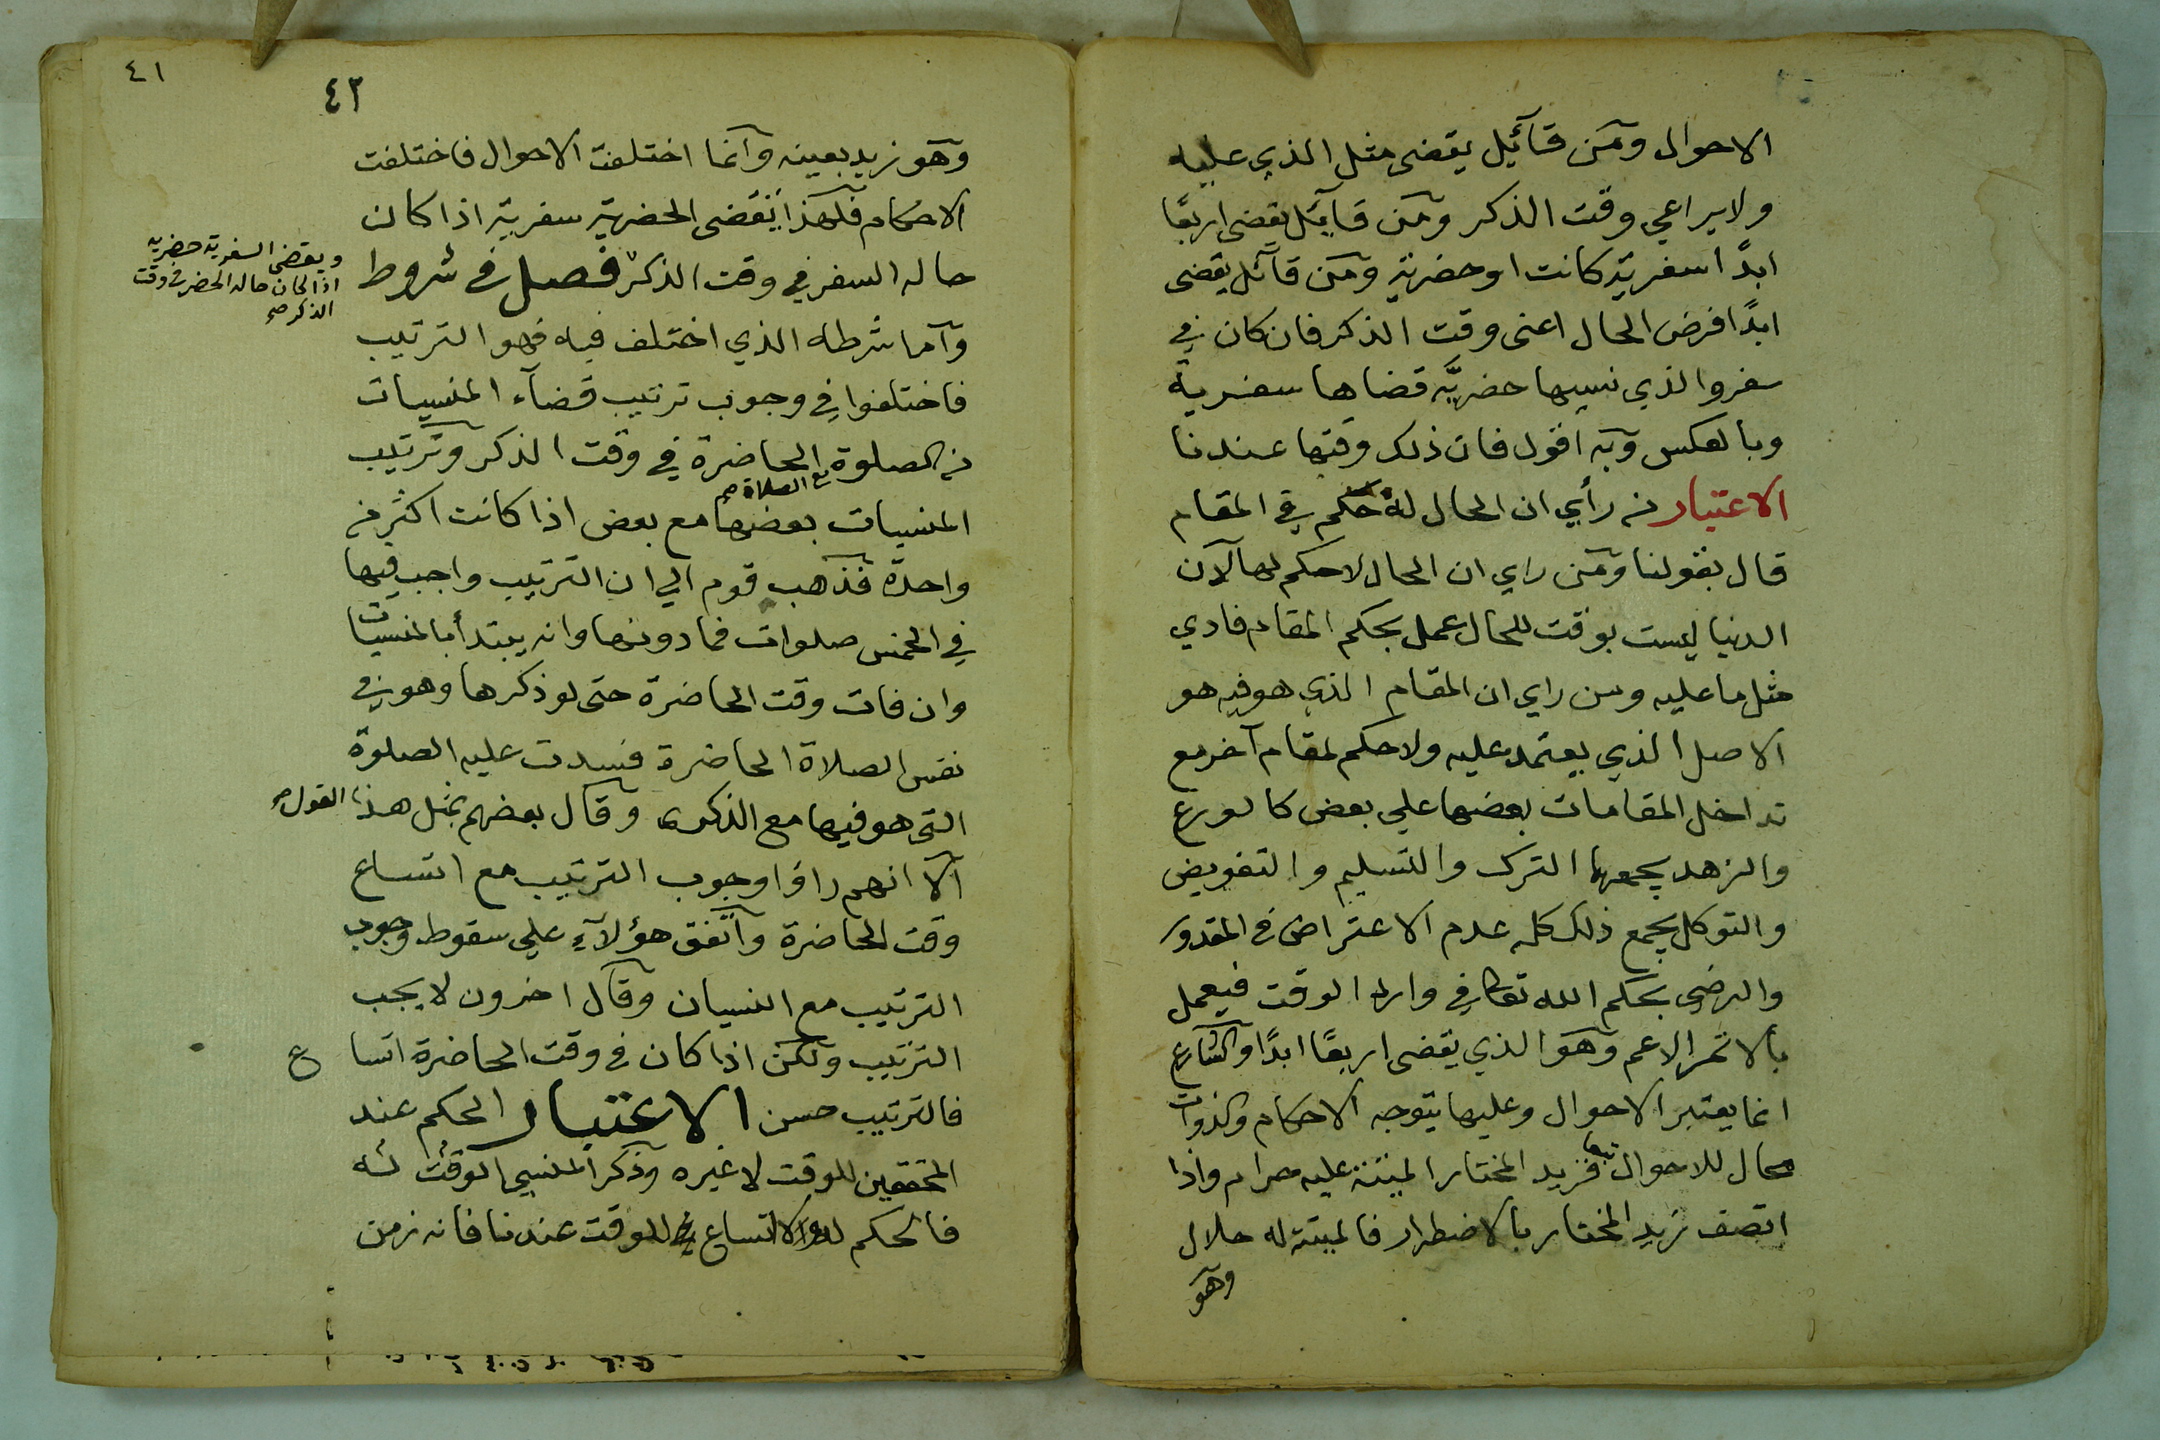 الاحوال ومن قائيل يقضى مثل الذي عليه
ولا يراعي وقت الذكر ومن قايئل يقضى اربعًا
ابدًا سفرية كانت او حضرية ومن قائل يقضى
ابدًا فرض الحال اعنى وقت الذكر فان كان في
سفر والذي نسيها حضرية قضاها سفرية
وبالعكس وبه اقول فان ذلك وقتها عندنا
الاعتبار من رأي ان الحال له حكم في المقام
قال بقولنا ومن راي ان الحال لا حكم لها لان
الدنيا ليست بوقت للحال عمل بحكم المقام فادي
مثل ما عليه ومن راي ان المقام الذي هو فيه هو
الاصل الذي يعتمد عليه ولا حكم لمقام آخر مع
تداخل المقامات بعضها علي بعض كالورع
والزهد يجمعها الترك والتسليم والتفويض
والتوكل يجمع ذلك كله عدم الاعتراض في المقدور
والرضى بحكم الله تعالى في وارد الوقت فيعمل
بالاتم الاعم وهو الذي يقضى اربعًا ابدًا والشارع
انما يعتبر الاحوال وعليها يتوجه الاحكام والذوات
محال للاحوال تبعا فزيد المختار الميتة عليه حرام واذا
اتصف زيد المختار بالاضطرار فالميتة له حلال
وهو
٤١
٤٢
وهو زيد بعينه وانما اختلفت الاحوال فاختلفت
الاحكام فلهذا يقضى الحضرية سفرية اذا كان
حاله السفر في وقت الذكر فصل في شروط
ويقضى السفرية حضرية
اذا كان حاله الحضر في وقت
الذكر صح
وآما شرطه الذي اختلف فيه فهو الترتيب
فاختلفوا في وجوب ترتيب قضآء المنسيات
من الصلوة الحاضرة في وقت الذكر وترتيب
مع الصلاة صح
المنسيات بعضها مع بعض اذا كانت اكثر من
واحدة فذهب قوم الي ان الترتيب واجب فيها
في الخمس صلوات فما دونها وانه يبتدأ بالمنسيات
وان فات وقت الحاضرة حتى لو ذكرها وهو في
نفس الصلاة الحاضرة فسدت عليه الصلوة
التى هو فيها مع الذكرى وقال بعضهم بمثل هذا القول
الا انهم راؤا وجوب الترتيب مع اتساع
وقت الحاضرة واتفق هؤلآء علي سقوط وجوب
الترتيب مع النسيان وقال اخرون لا يجب
الترتيب ولكن اذا كان في وقت الحاضرة اتسا ع
فالترتيب حسن الاعتبار الحكم عند
المحققين للوقت لا غيره وذكر المنسي الوقت له
فالحكم له والاتساع في الوقت عندنا فانه زمن